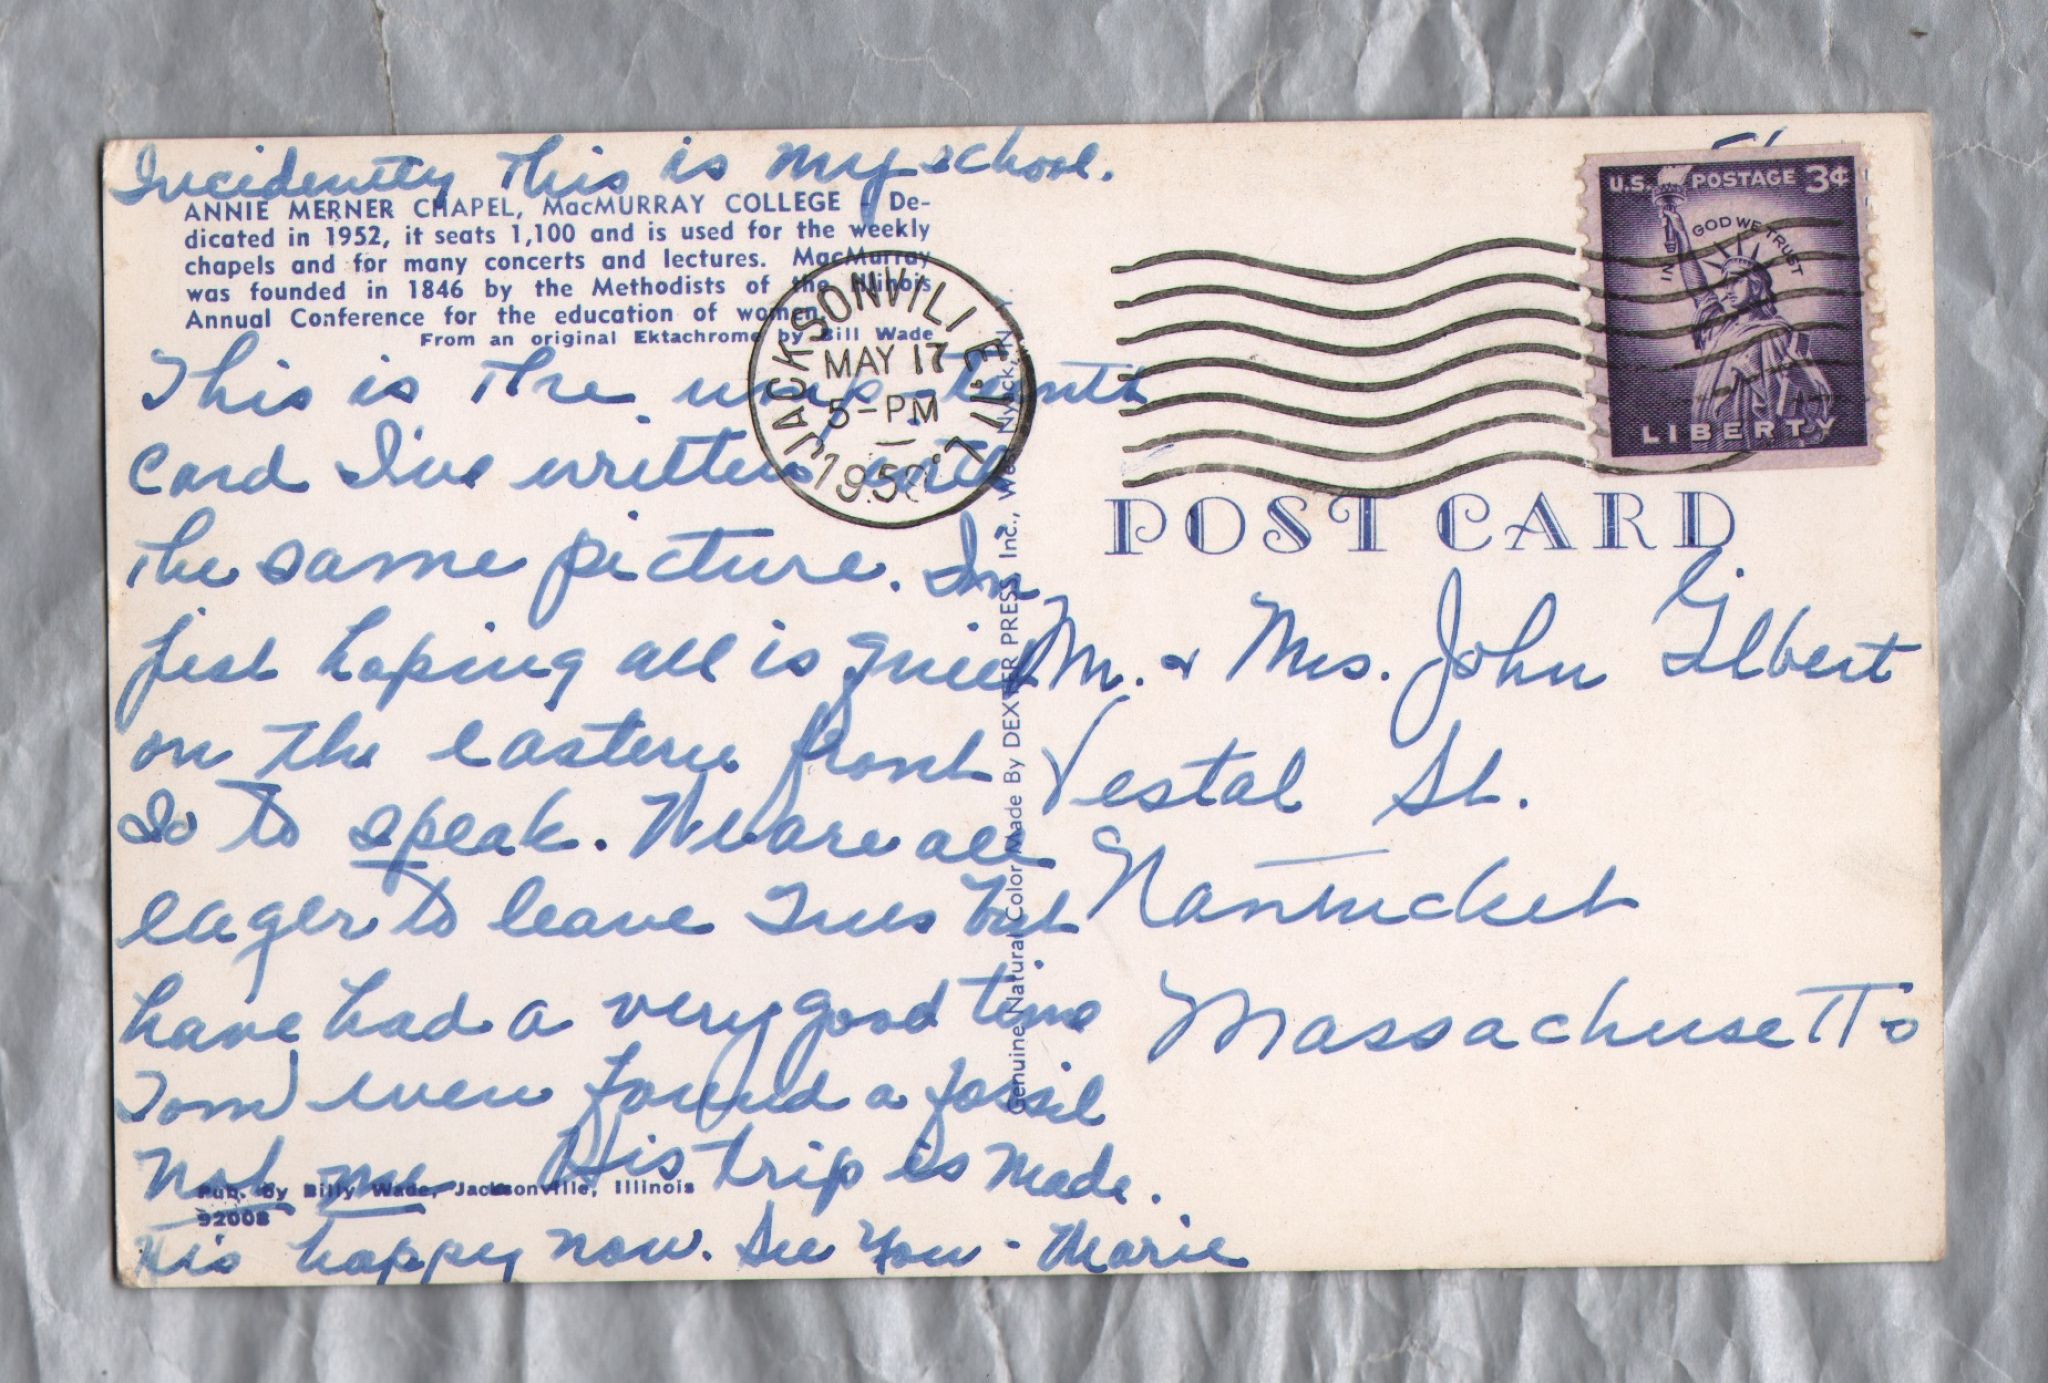 Incidently This is my school.
ANNIE MERNER CHAPEL, MacMURRAY COLLEGE - De-
dicated in 1952, it seats 1,100 and is used for the weekly
chapels and for many concerts and lectures. MacMurray
was founded in 1846 by the Methodists of the Illinois
Annual Conference for the education of women.
From an original Ektachrome by Bill Wade
This is the ump-teenth
card I've written with
the same picture. I'm
just hoping all is quiet
on the eastern front
so to speak. We are all
eager to leave Tues but
have had a very good time
Tom even found a fossil
Not me His trip is made.
He's happy now. See you - Marie
Pub. by Billy Wade, Jacksonville, Illinois
92008
Genuine Natural Color Made By DEXTER PRESS, Inc., West Nyack, N.Y.
JACKSONVILLE, ILL.
MAY 17
5-PM
U.S. POSTAGE 3¢
IN GOD WE TRUST
LIBERTY
POST CARD
Mr. & Mrs. John Gilbert
Vestal St.
Nantucket
Massachusetts